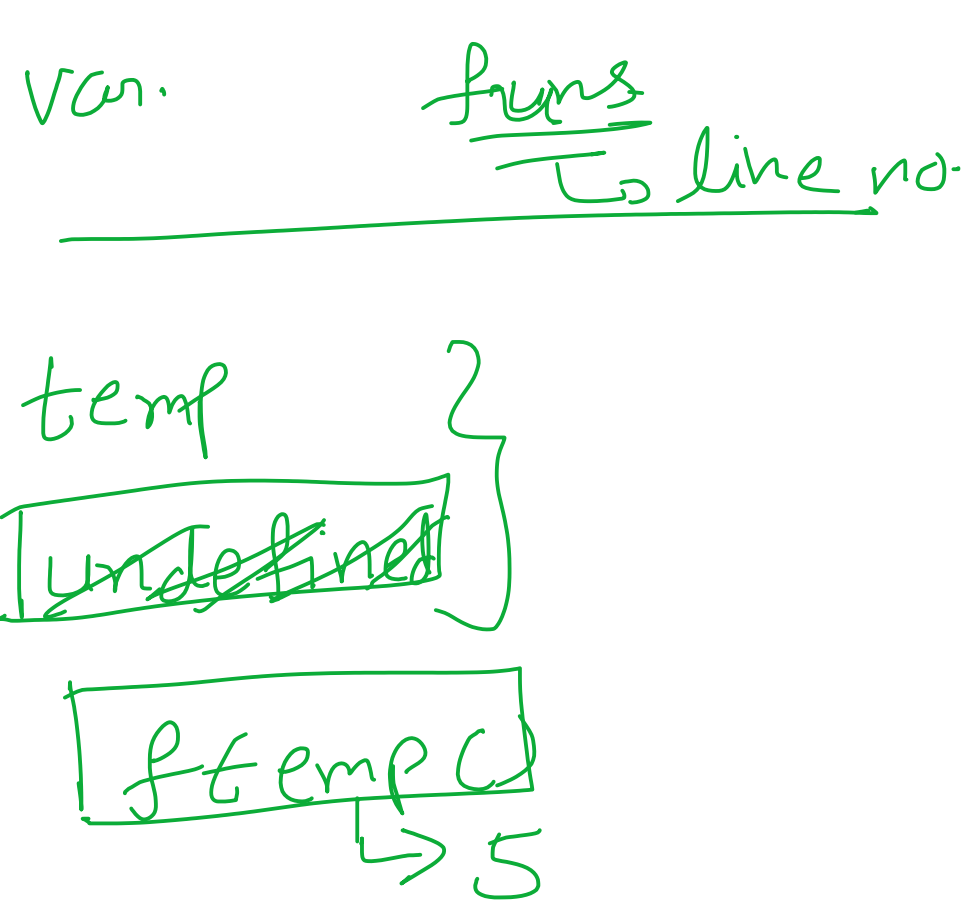 Var. funs
To line no.
temp
undefined
ftemp()
5